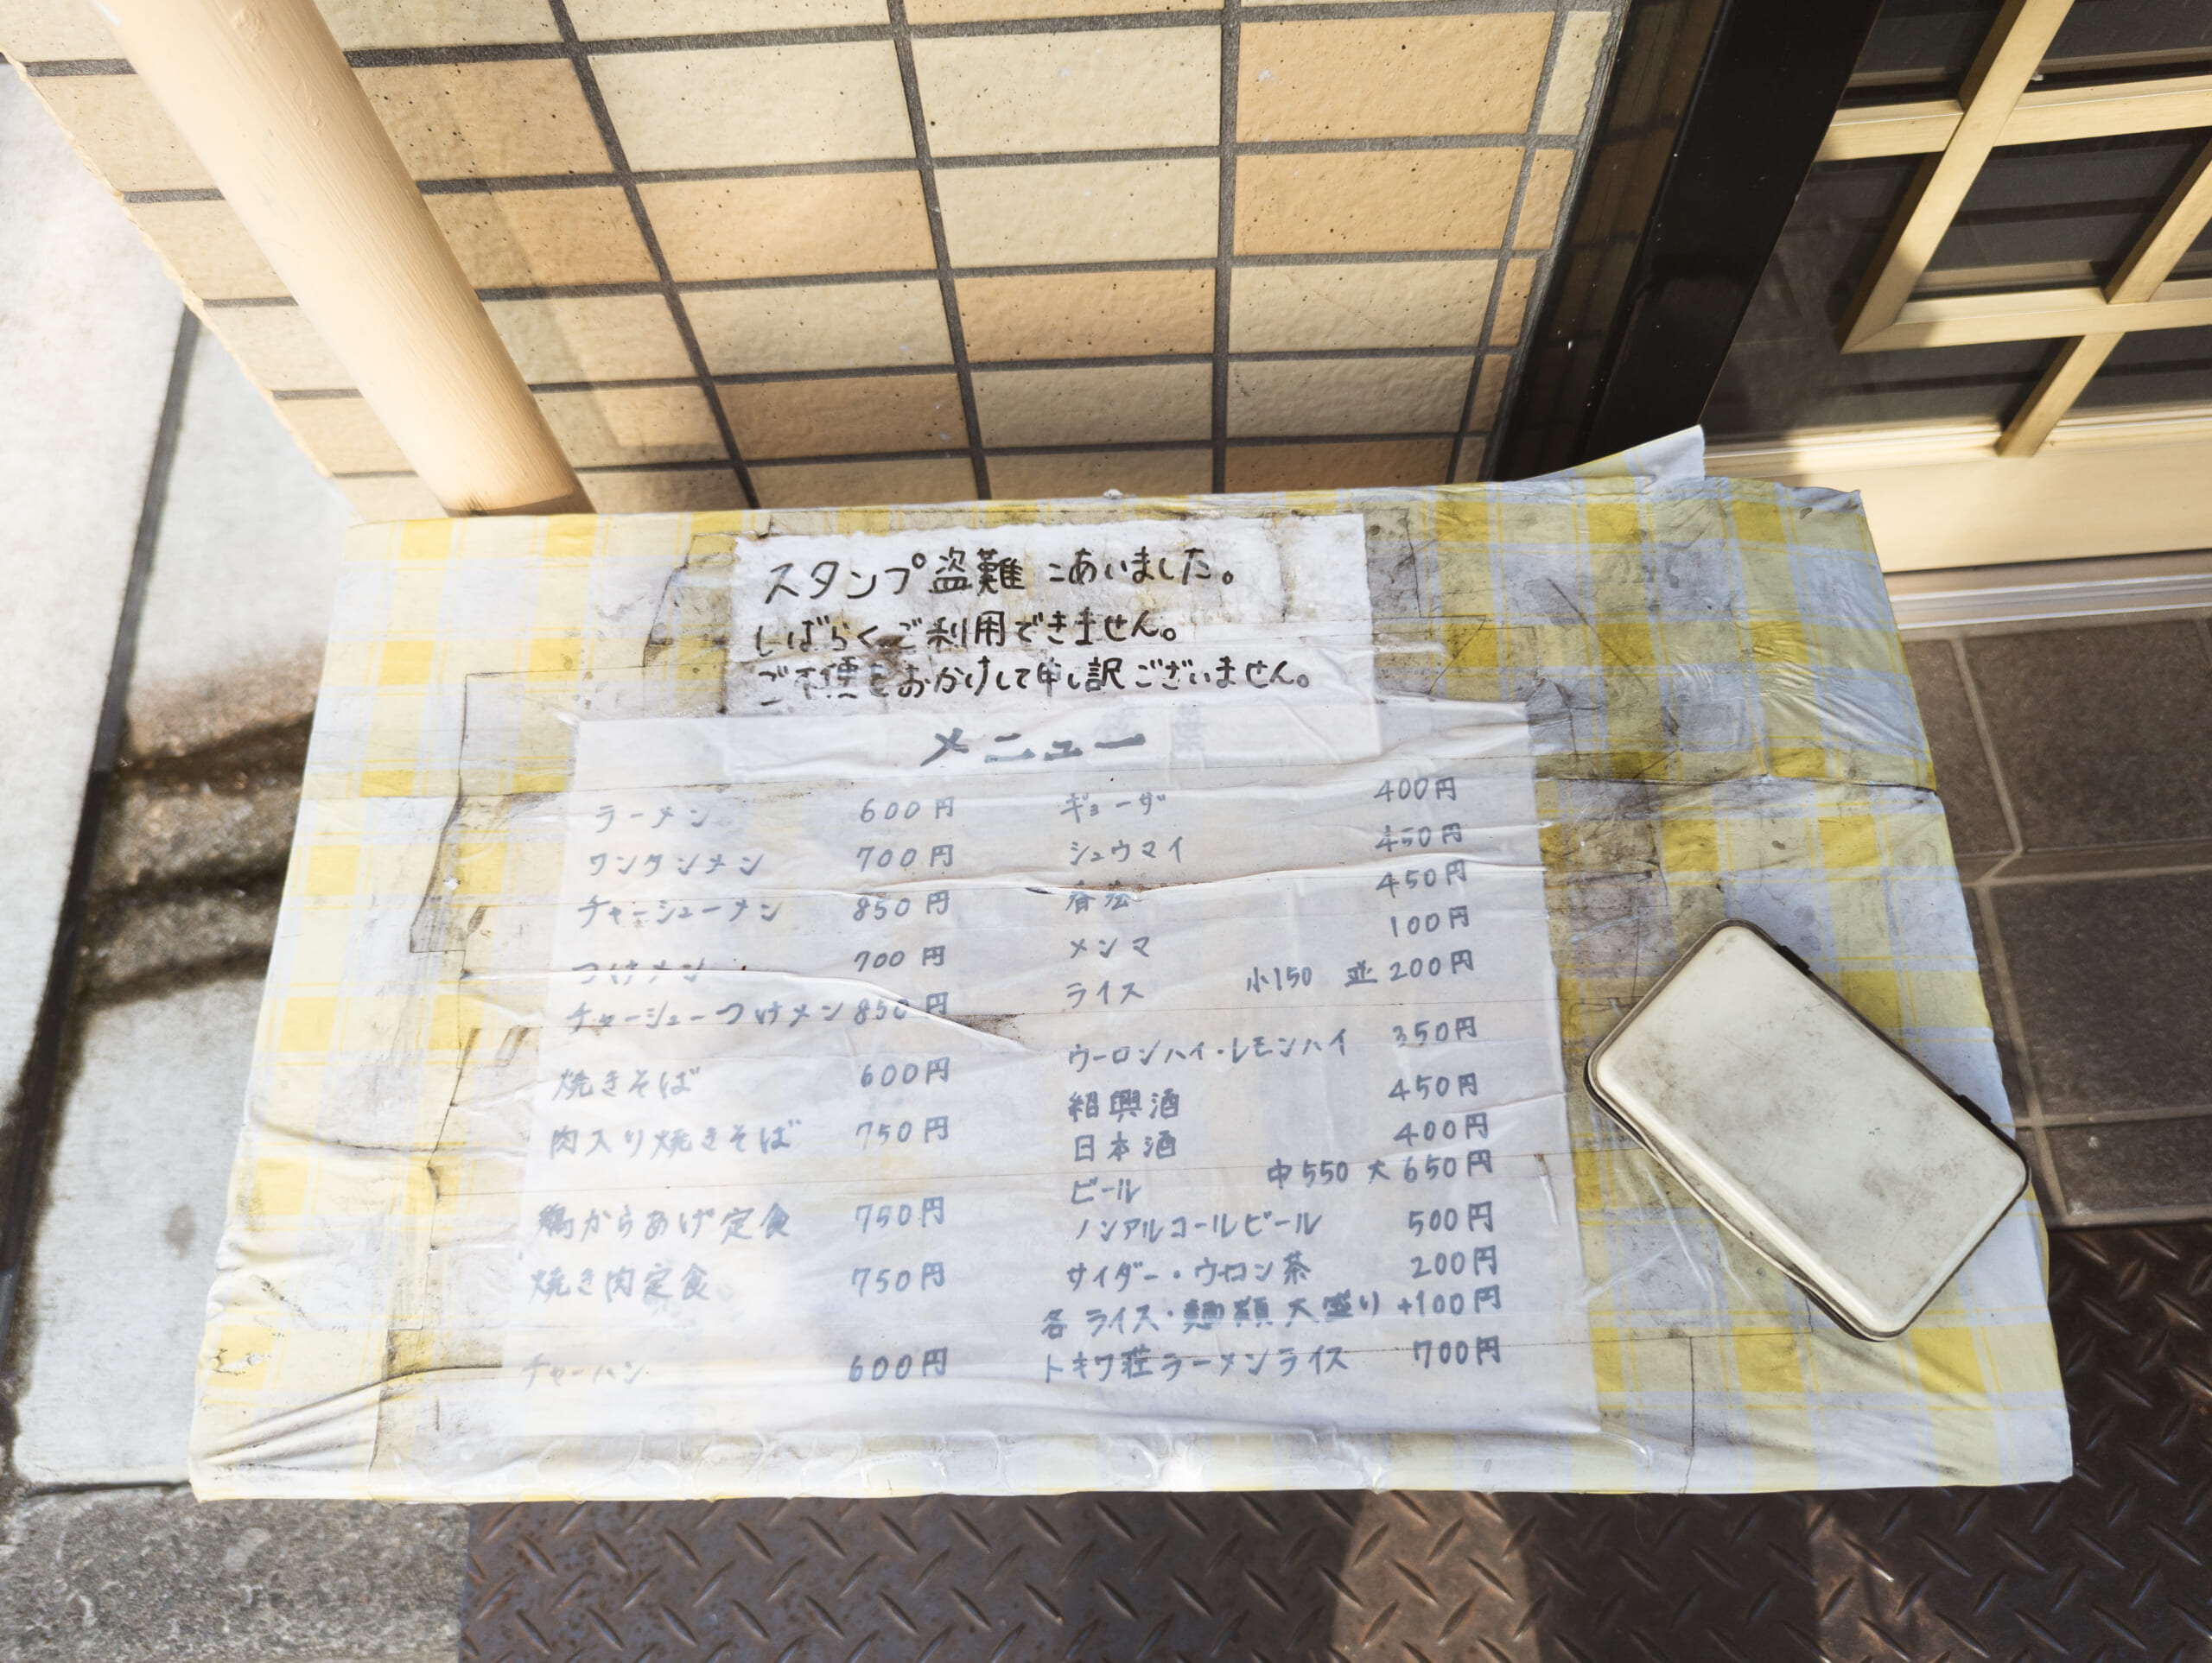 スタンプ盗難にあいました。
しばらくご利用できません。
ご不便をおかけして申し訳ございません。
メニュー
ラーメン 600円
ワンタンメン 700円
チャーシューメン 850円
つけメン 700円
チャーシューつけメン 850円
焼きそば 600円
肉入り焼きそば 750円
鶏からあげ定食 750円
焼き肉定食 750円
チャーハン 600円
ギョーザ 400円
シュウマイ 450円
450円
メンマ 100円
ライス 小150 並200円
ウーロンハイ・レモンハイ 350円
紹興酒 450円
日本酒 400円
ビール 中550 大650円
ノンアルコールビール 500円
サイダー・ウーロン茶 200円
各ライス・麺類大盛り +100円
トキワ荘ラーメンライス 700円